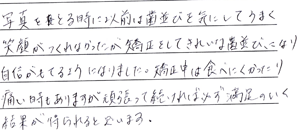 写真をとる時に以前は歯並びを気にしてうまく
笑顔がつくれなかったが矯正をしてきれいな歯並びになり
自信がもてるようになりました。矯正中は食べにくかったり
痛い時もありますが頑張って続ければ必ず満足のいく
結果が得られると思います。